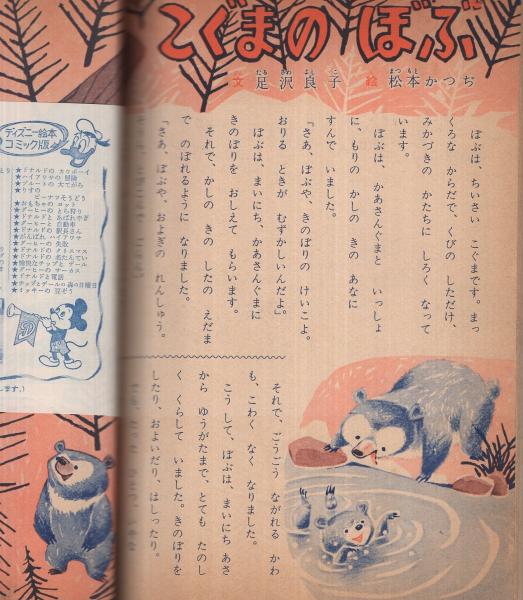 こぐまの ぼぶ
文 足沢良子 絵 松本かつぢ
ぼぶは、ちいさい こぐまです。まっ
くろな からだで、くびの しただけ、
みかづきの かたちに しろく なって
います。
ぼぶは、かあさんぐまと いっしょ
に、もりの かしの きの あなに
すんで いました。
「さあ、ぼぶや、きのぼりの けいこよ。
おりる ときが むずかしいんだよ」
ぼぶは、まいにち、かあさんぐまに
きのぼりを おしえて もらいます。
それで、かしの きの したの えだま
で のぼれるように なりました。
「さあ、ぼぶや、およぎの れんしゅう。
それで、ごうごう ながれる かわ
も、こわく なく なりました。
こう して、ぼぶは、まいにち あさ
から ゆうがたまで、とても たのし
く くらして いました。きのぼりを
したり、およいだり、はしったり。
ディズニー絵本
コミック版
★ドナルドのカウボーイ
★ハイアワサの冒険
★プルートの大てがら
★りすの
ピーナツそうどう
★おもちゃのヨット
★グーヒーのとら狩り
★ドナルドとあばれやぎ
★グーヒーと自動車
★ドナルドの駅長さん
★がんばれハイアワサ
★グーヒーの失敗
★ドナルドのクリスマス
★ドナルドの名たんてい
★愉快なチップとデール
★グーヒーのサーカス
★ドナルドと電話
★チップとデールの森の日曜日
★ミッキーの豆ぞう
D
します。)